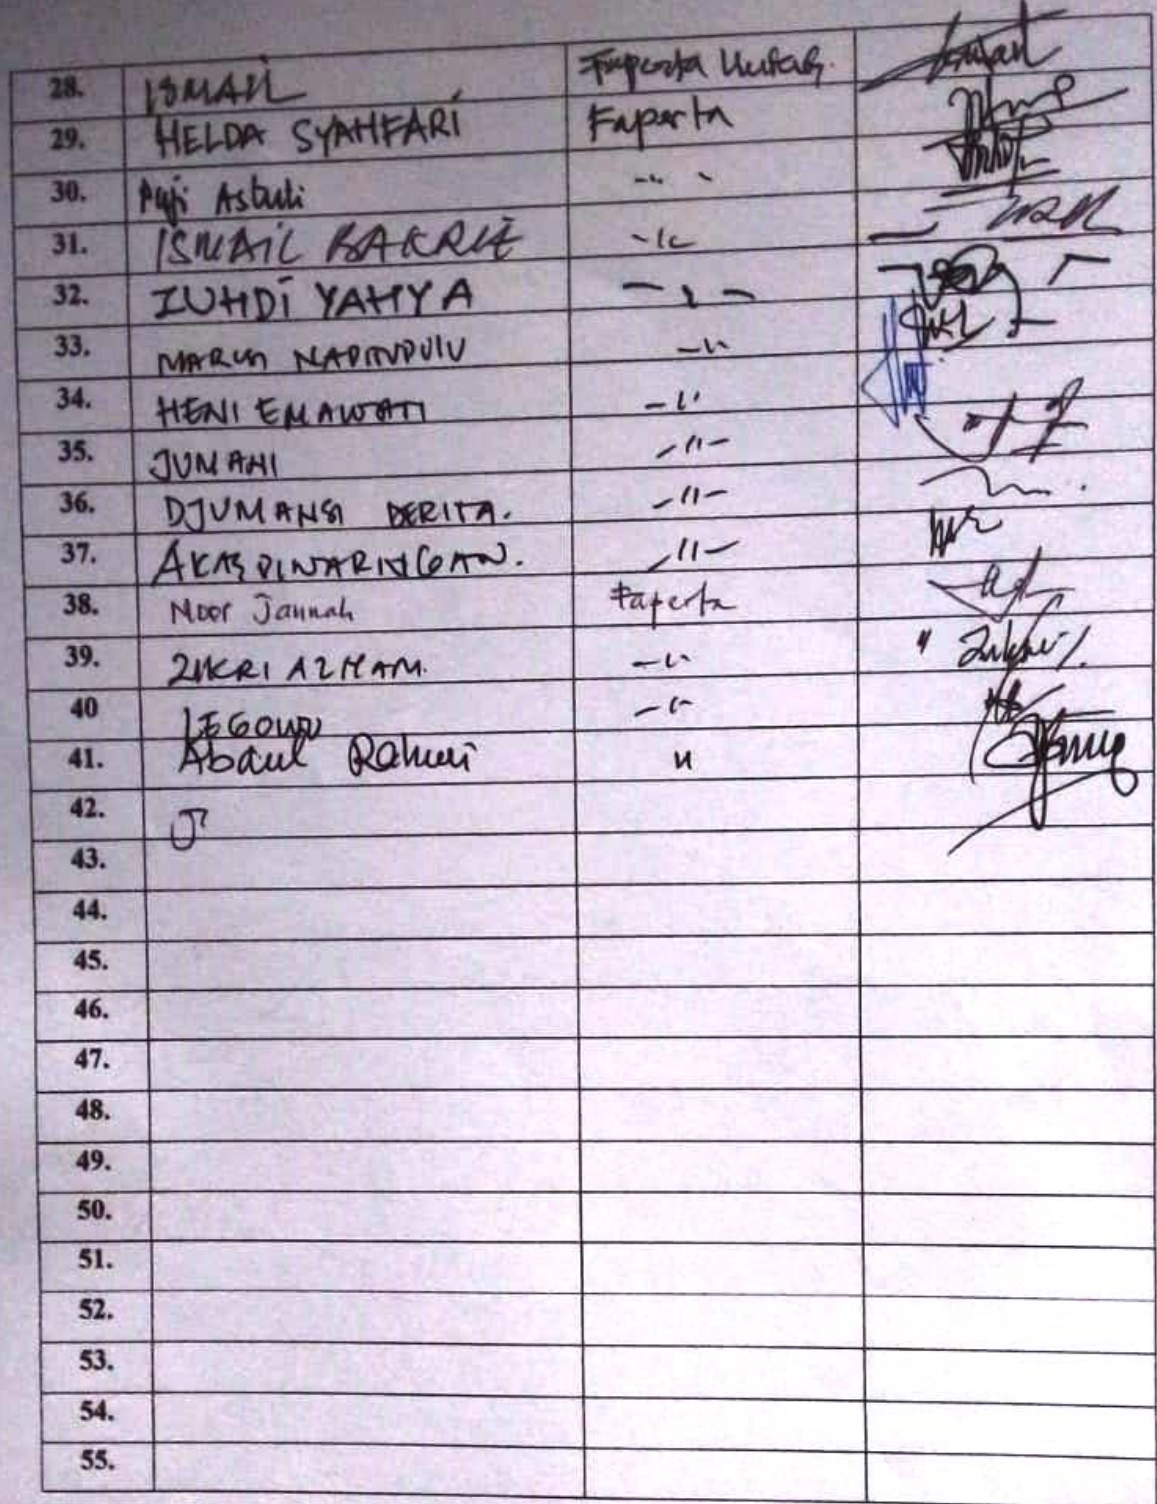 28. ISMAIL Faperta Untag.
29. HELDA SYAHFARI Faperta
30. Puji Astuti -"-
31. ISMAIL BAKRIE -"-
32. ZUHDI YAHYA -"-
33. MARISI NAPITUPULU -"-
34. HENI EMAWATI -"-
35. JUMANI -"-
36. DJUMANSI DERITA. -"-
37. AKAS PINARINGAN. -"-
38. Noor Jannah Faperta
39. ZIKRI AZHAM. -"-
40 LEGOWO -"-
41. Abdul Rahmi "
42.
43.
44.
45.
46.
47.
48.
49.
50.
51.
52.
53.
54.
55.